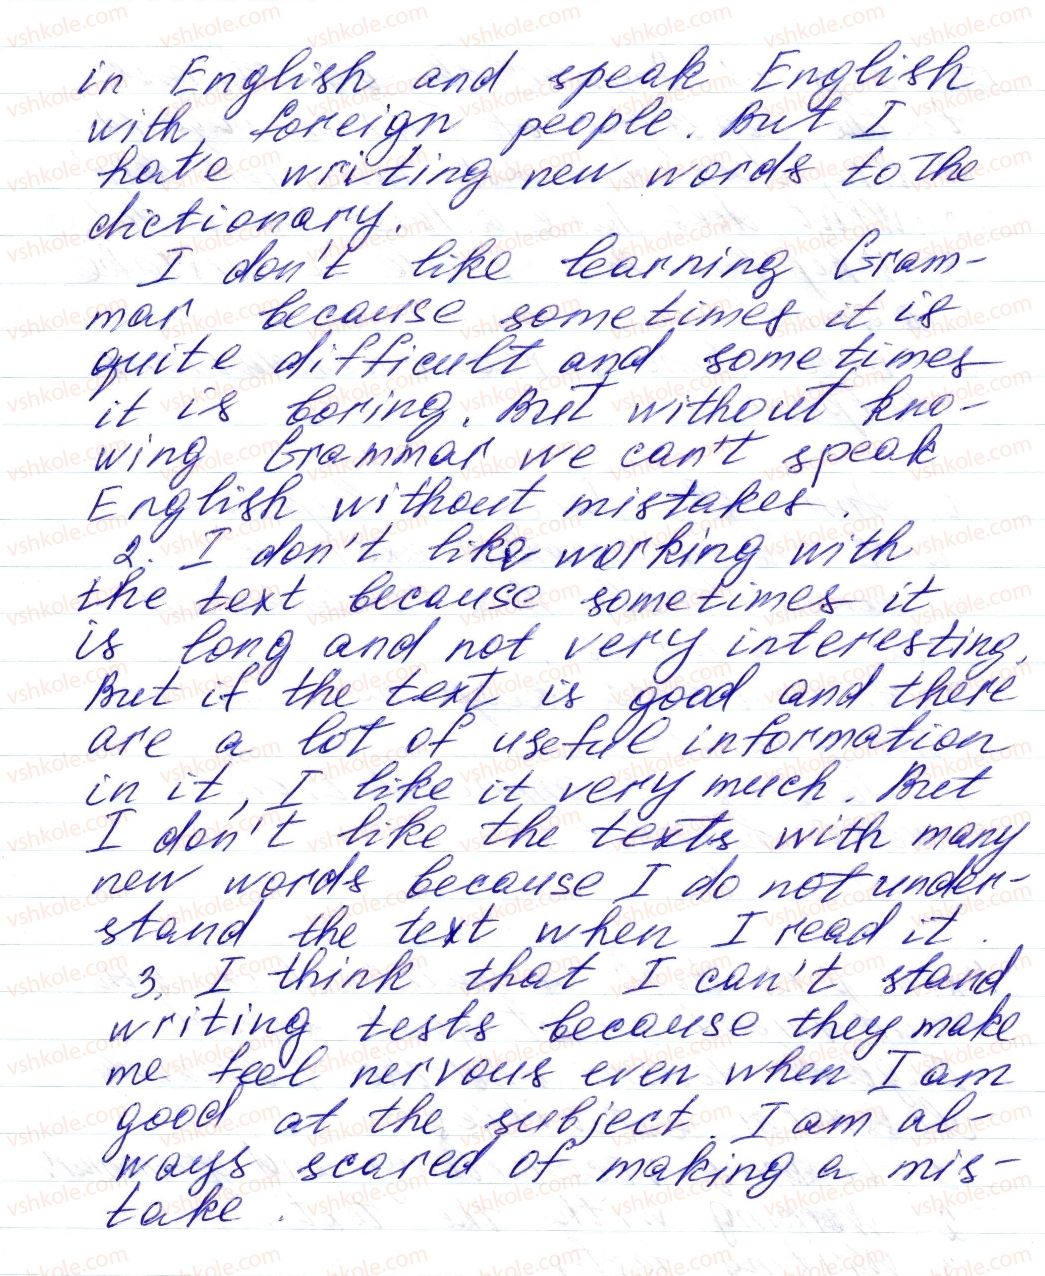 in English and speak English
with foreign people. But I
hate writing new words to the
dictionary.
I don't like learning Gram-
mar because sometimes it is
quite difficult and sometimes
it is boring. But without kno-
wing Grammar we can't speak
English without mistakes.
2. I don't like working with
the text because sometimes it
is long and not very interesting.
But if the text is good and there
are a lot of useful information
in it, I like it very much. But
I don't like the texts with many
new words because I do not under-
stand the text when I read it.
3. I think that I can't stand
writing tests because they make
me feel nervous even when I am
good at the subject. I am al-
ways scared of making a mis-
take.